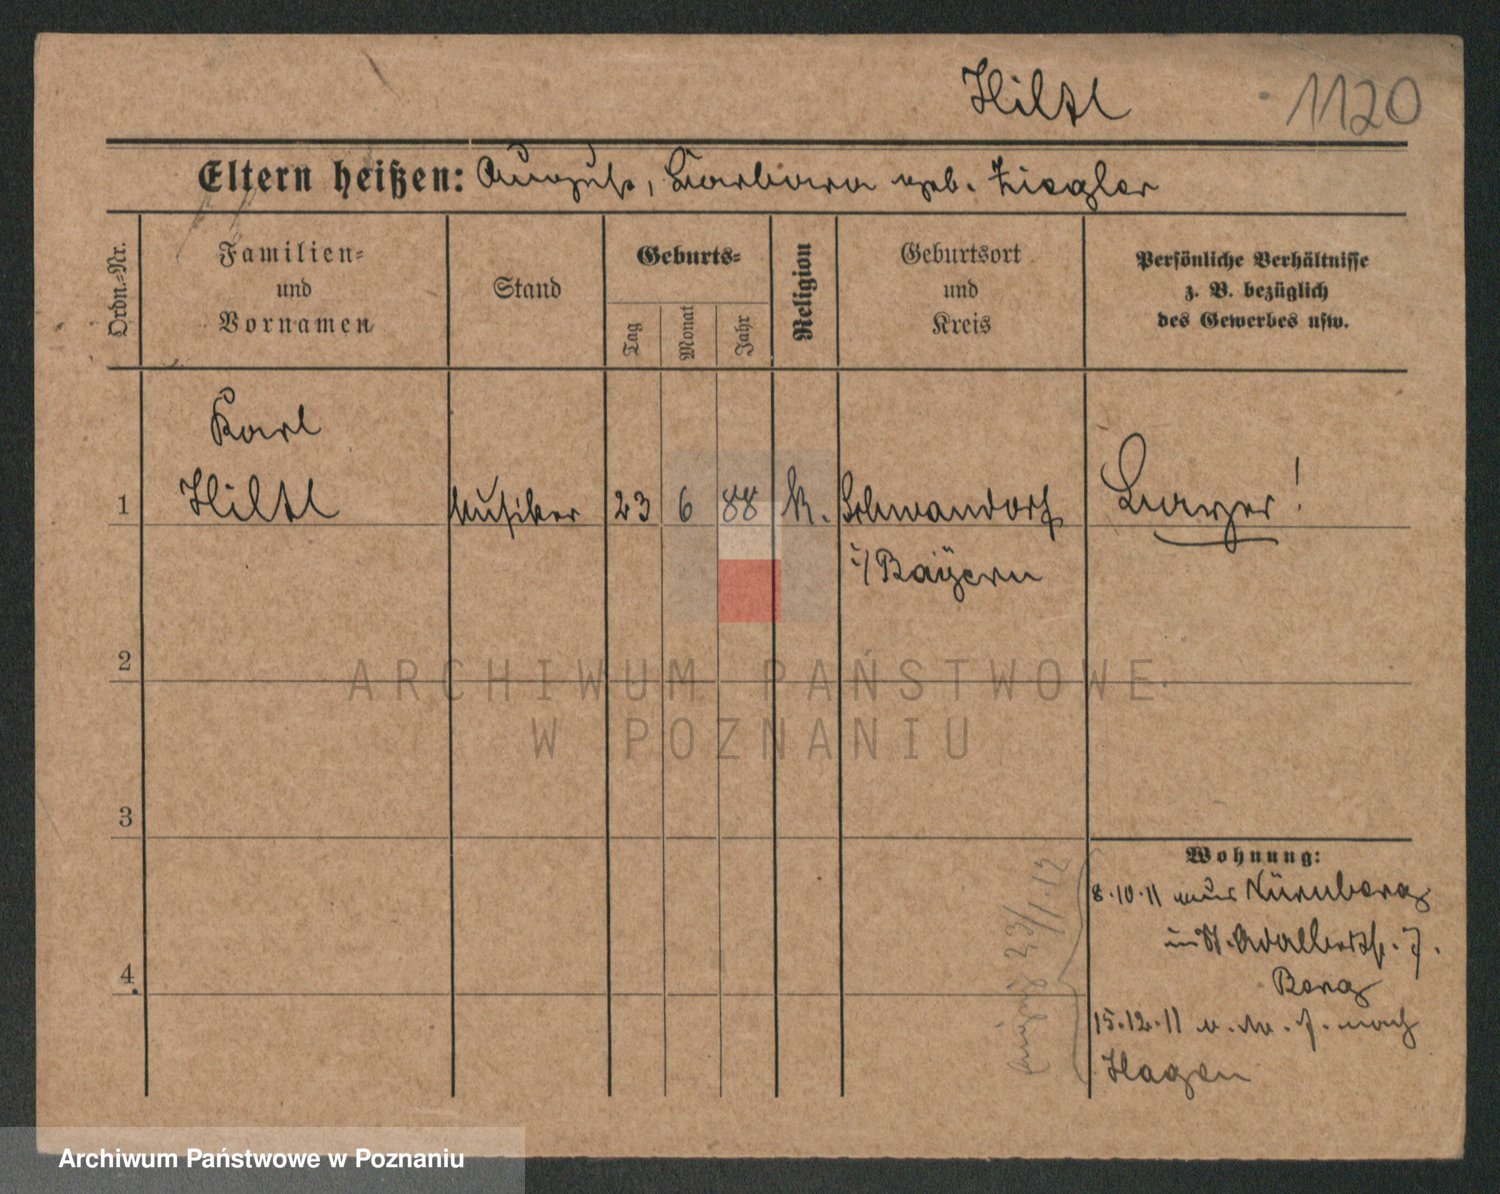 Hiltl
1120
Eltern heißen: August, Barbara geb. Ziegler
Ordn.-Nr.
Familien-
und
Vornamen
Stand
Geburts-
Tag
Monat
Jahr
Religion
Geburtsort
und
Kreis
Persönliche Verhältnisse
z. B. bezüglich
des Gewerbes usw.
Karl
1 Hiltl Musiker 23 6 88 K. Schwandorf
i/Bayern
2
3
4
Wohnung:
8.10.11 aus Nürnberg
in St. Adalbertstr. 7.
Berg
15.12.11 v. 7. nach
Hagen
ARCHIWUM PAŃSTWOWE
W POZNANIU
Archiwum Państwowe w Poznaniu